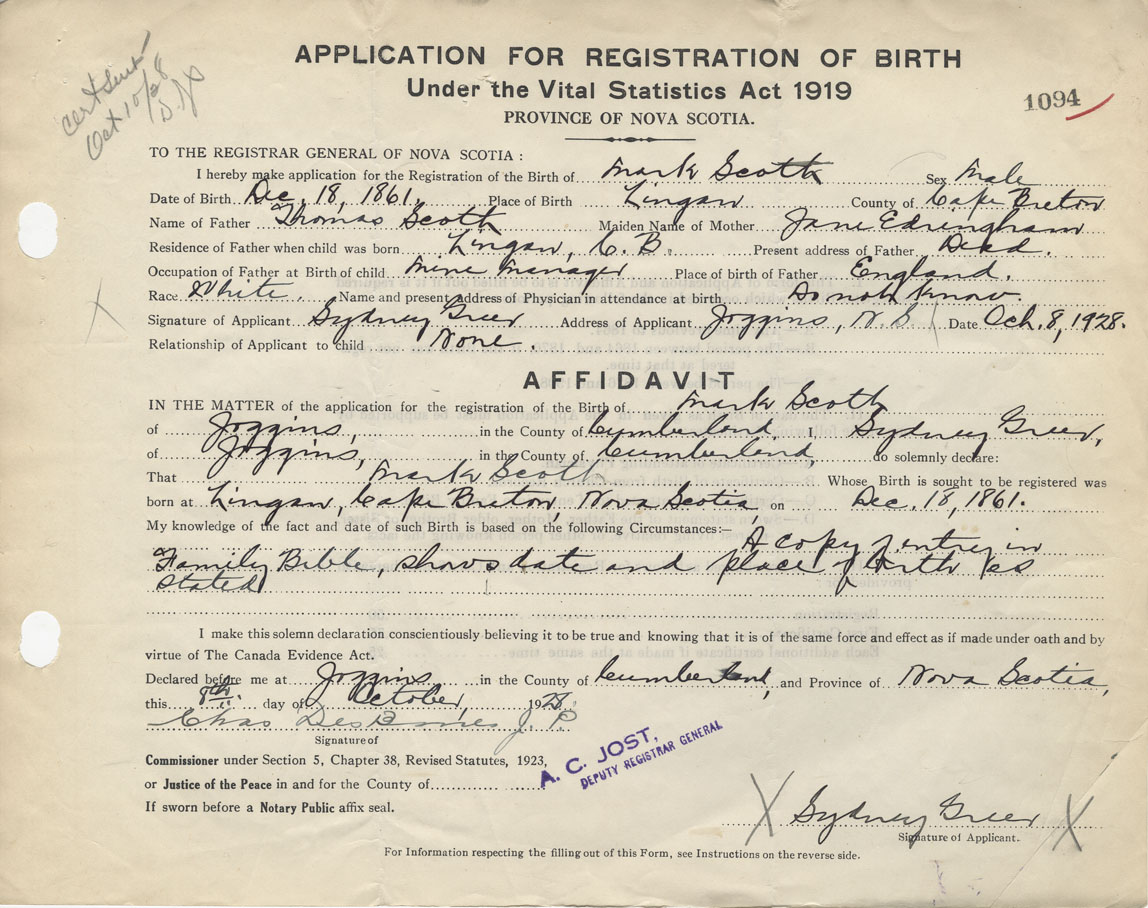 Cert Sent
Oct 10/28
APPLICATION FOR REGISTRATION OF BIRTH
Under the Vital Statistics Act 1919
PROVINCE OF NOVA SCOTIA.
1094
TO THE REGISTRAR GENERAL OF NOVA SCOTIA :
I hereby make application for the Registration of the Birth of Mark Scott Sex Male
Date of Birth Dec. 18, 1861. Place of Birth Lingan County of Cape Breton
Name of Father Thomas Scott Maiden Name of Mother Jane Edringham
Residence of Father when child was born Lingan, C. B. Present address of Father Dead.
Occupation of Father at Birth of child Mine Manager Place of birth of Father England.
Race White. Name and present address of Physician in attendance at birth Do not know.
Signature of Applicant Sydney Greer Address of Applicant Joggins, N. S. Date Oct. 8, 1928.
Relationship of Applicant to child None.
AFFIDAVIT
IN THE MATTER of the application for the registration of the Birth of Mark Scott
of Joggins, in the County of Cumberland, I, Sydney Greer,
of Joggins, in the County of Cumberland, do solemnly declare:
That Mark Scott Whose Birth is sought to be registered was
born at Lingan, Cape Breton, Nova Scotia on Dec. 18, 1861.
My knowledge of the fact and date of such Birth is based on the following Circumstances:— A copy of entry in
Family Bible, shows date and place of birth as
stated
I make this solemn declaration conscientiously believing it to be true and knowing that it is of the same force and effect as if made under oath and by
virtue of The Canada Evidence Act.
Declared before me at Joggins in the County of Cumberland, and Province of Nova Scotia,
this 8th day of October, 1928.
Chas DesBarres J. P.
Signature of
Commissioner under Section 5, Chapter 38, Revised Statutes, 1923,
or Justice of the Peace in and for the County of
If sworn before a Notary Public affix seal.
A. C. JOST,
DEPUTY REGISTRAR GENERAL
X Sydney Greer X
Signature of Applicant.
For Information respecting the filling out of this Form, see Instructions on the reverse side.